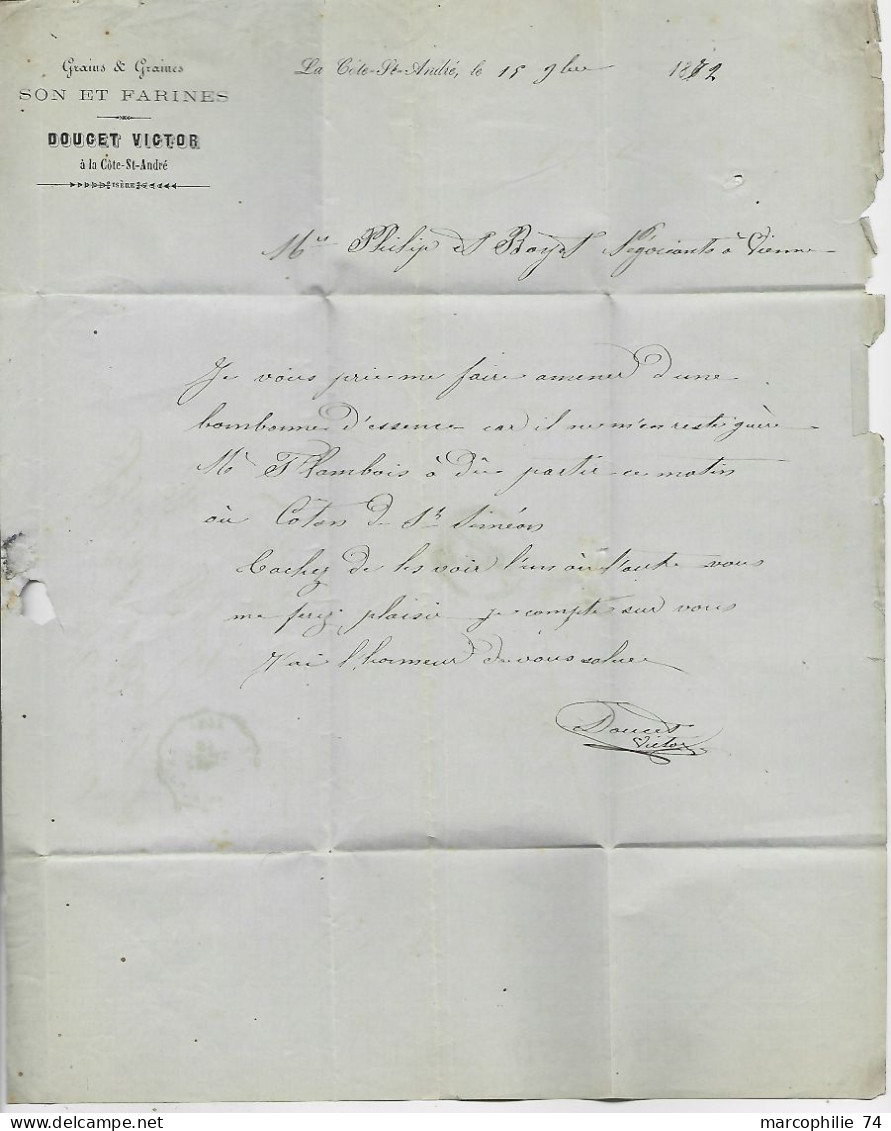 Grains & Graines
SON ET FARINES
DOUCET VICTOR
à la Côte-St-André
ISÈRE
La Côte-St-André, le 15 9bre 1872
Mrs Philip et Boyet Négociants à Vienne
Je vous prie me faire amener d'une
bombonne d'essence car il ne m'en reste guère
Mr Flambois à dû partir ce matin
où Coton de St Siméon
Tachez de les voir l'un où l'autre vous
me ferez plaisir je compte sur vous
J'ai l'honneur de vous saluer
Doucet
Victor
marcophilie 74